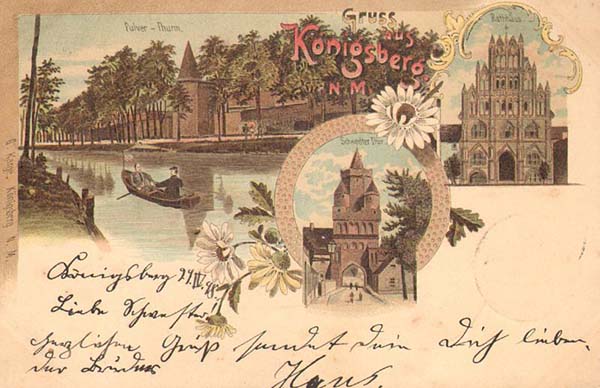 Pulver - Thurm.
Gruss
aus
Königsberg
N M
Rathhaus
Schwedter Thor
Königsberg 24/IV. 98.
Liebe Schwester!
Herzlichen Gruß sendet dein Dich lieben-
der Bruder
Hans.